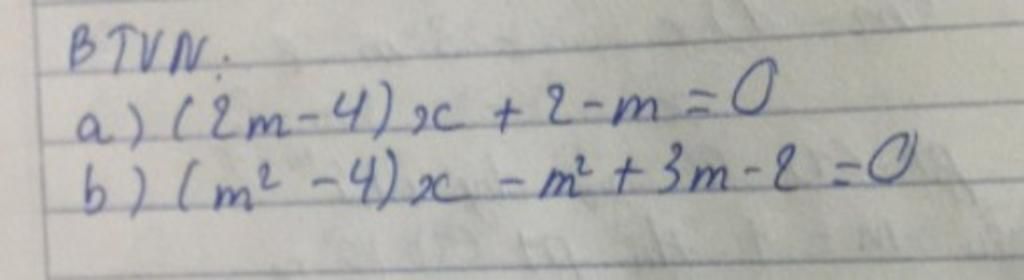 BTVN:
a) (2m-4)x + 2-m = 0
b) (m² -4)x - m² + 3m - 2 = 0